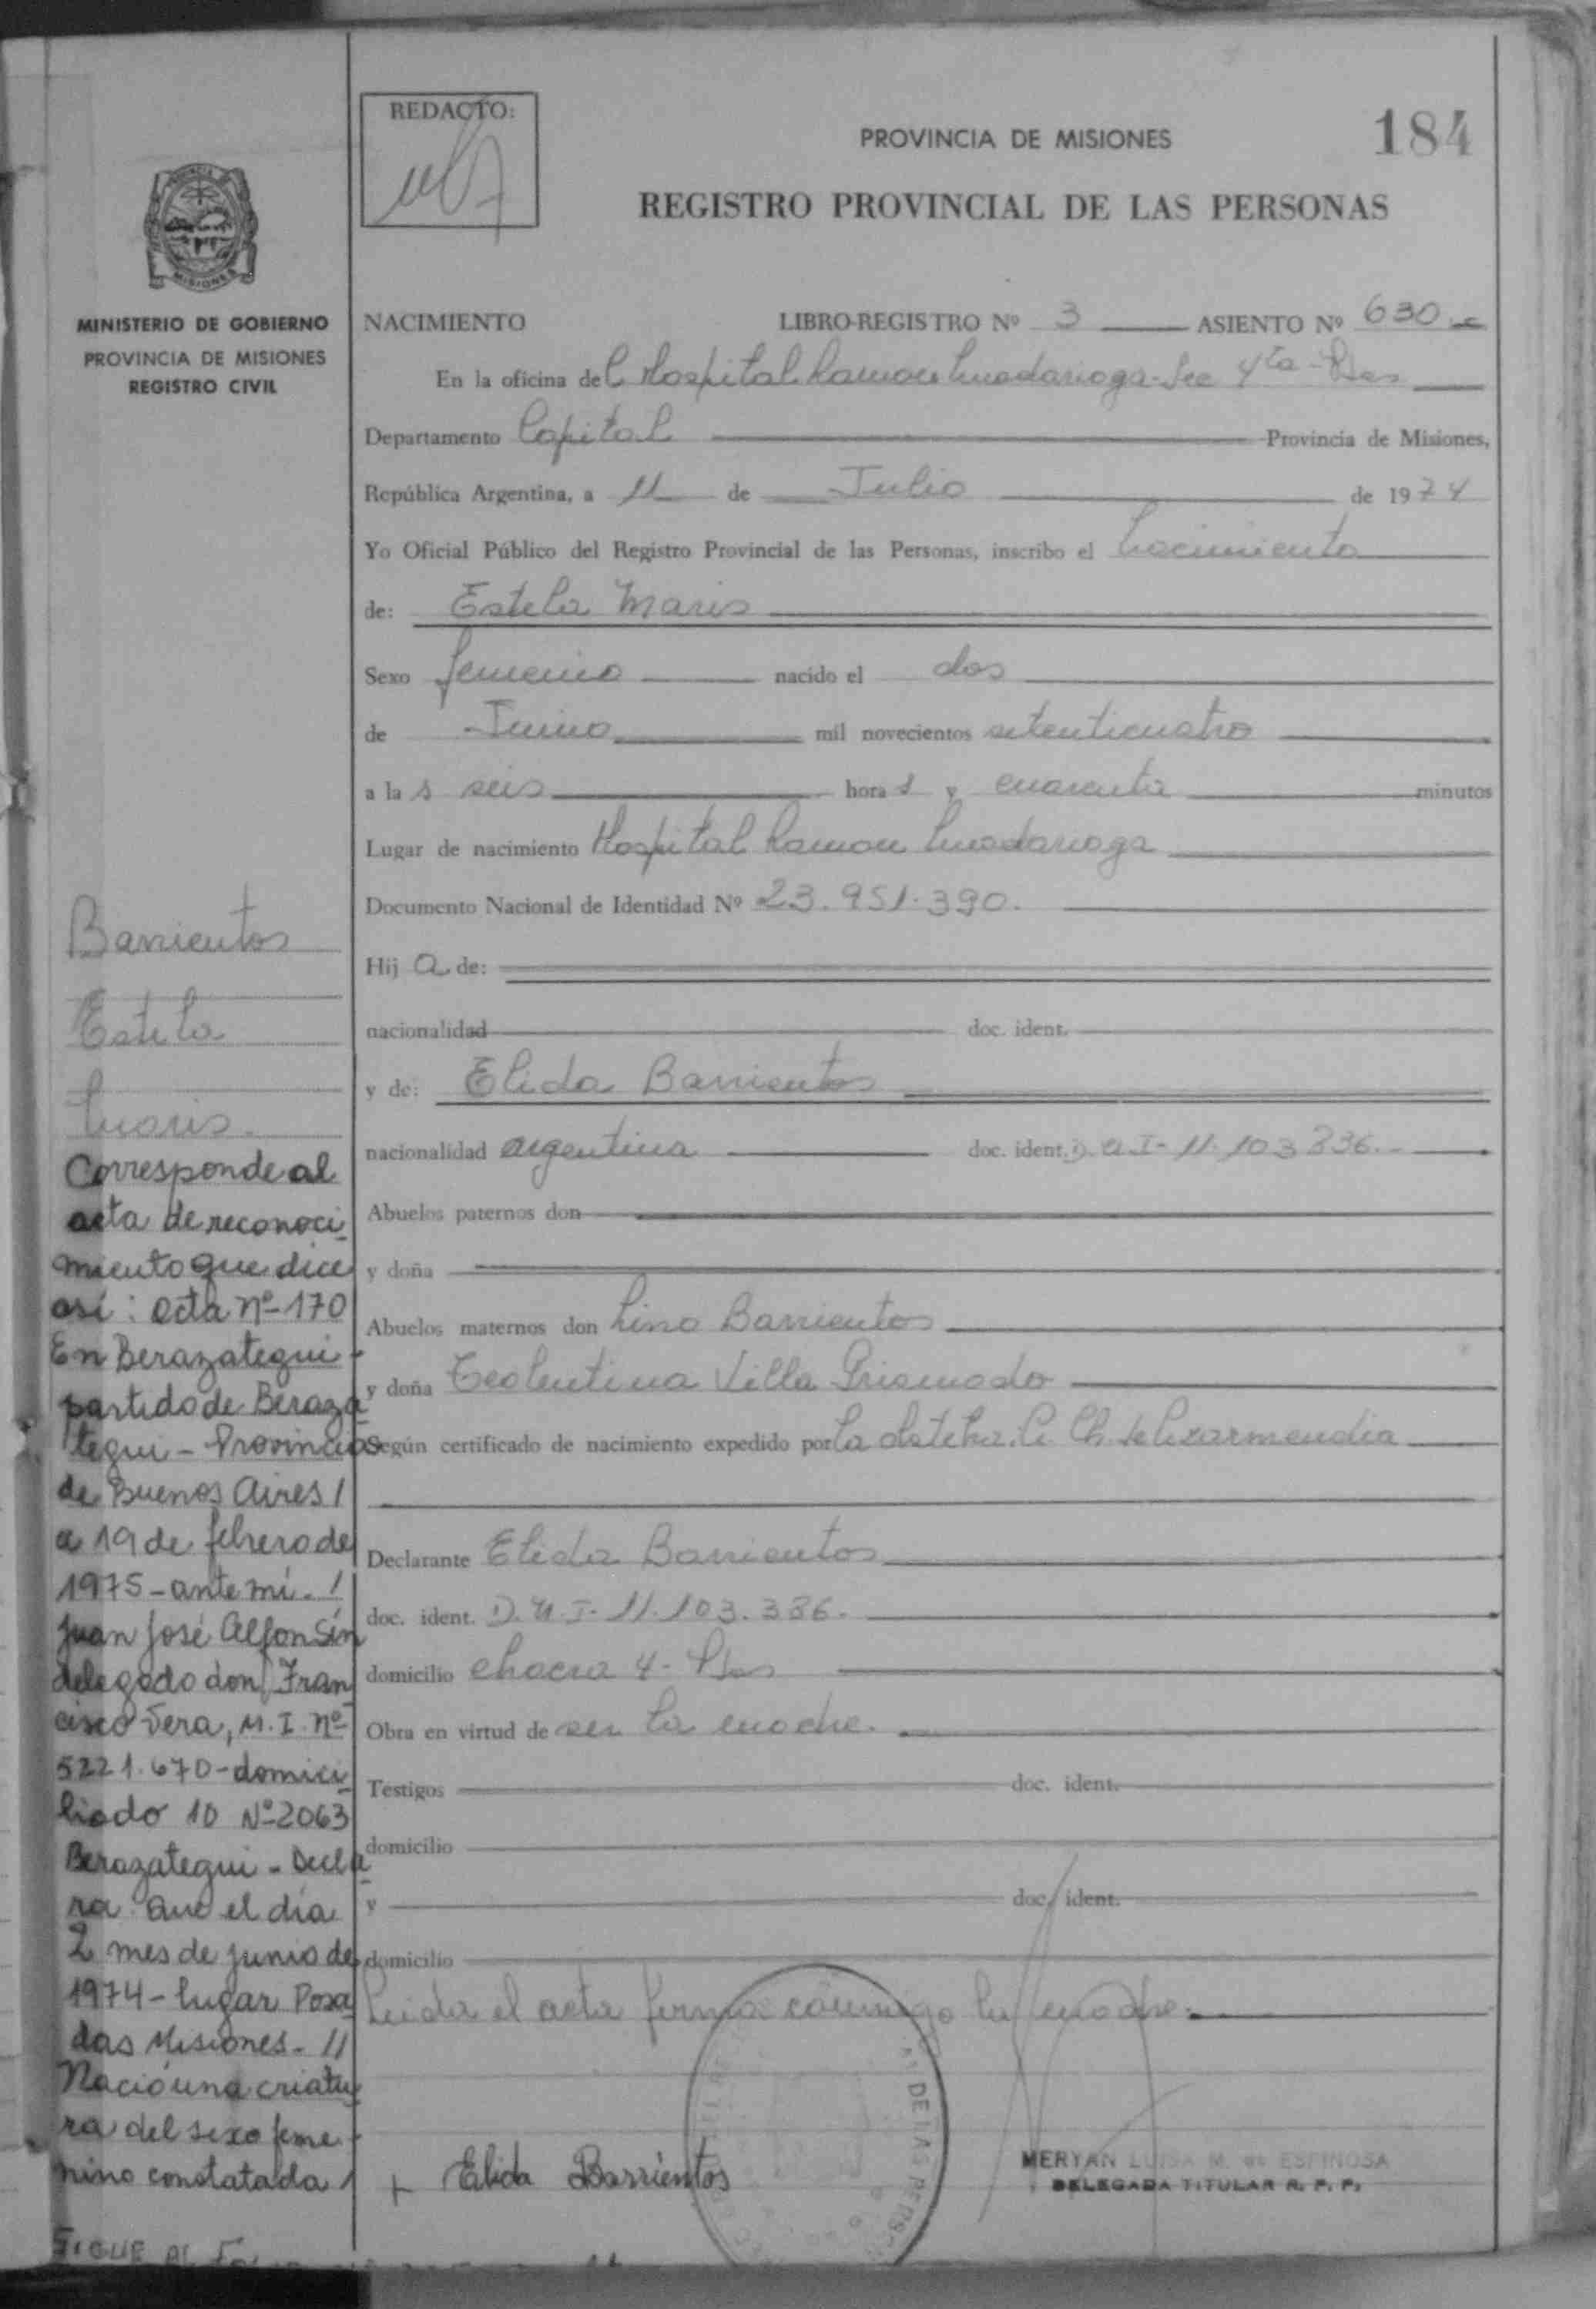 REDACTO:
PROVINCIA DE MISIONES
184
REGISTRO PROVINCIAL DE LAS PERSONAS
MISIONES
MINISTERIO DE GOBIERNO
PROVINCIA DE MISIONES
REGISTRO CIVIL
NACIMIENTO LIBRO-REGISTRO Nº 3 ASIENTO Nº 630
En la oficina del Hospital Ramon Madariaga - Sec 4ta - Pdas
Departamento Capital Provincia de Misiones,
República Argentina, a 11 de Julio de 1974
Yo Oficial Público del Registro Provincial de las Personas, inscribo el nacimiento
de: Estela Maris
Sexo femenino nacido el dos
de Junio mil novecientos setenticuatro
a las seis horas y cuarenta minutos
Lugar de nacimiento Hospital Ramon Madariaga
Documento Nacional de Identidad Nº 23.951.390.
Hija de:
nacionalidad doc. ident.
y de: Elida Barrientos
nacionalidad argentina doc. ident. D.N.I- 11.103.336.-
Abuelos paternos don
y doña
Abuelos maternos don Lino Barrientos
y doña Villa
Según certificado de nacimiento expedido por la obstetra.
Declarante Elida Barrientos
doc. ident. D.N.I- 11.103.336.
domicilio chacra 4- Pdas
Obra en virtud de ser la madre.
Testigos doc. ident.
domicilio
y doc. ident.
domicilio
Leida el acta firma conmigo la madre.
+ Elida Barrientos
MERYAN LUISA M. de ESPINOSA
DELEGADA TITULAR R. P. P.
Barrientos
Estela
Maris.
Corresponde al
acta de reconoci
miento que dice
así: acta nº 170
En Berazategui -
partido de Beraza
tegui - Provincia
de Buenos Aires /
a 19 de febrero de
1975 - ante mí. /
Juan José Alfonsín
delegado don Fran
cisco Vera, M.I. nº
5221.670 - domici
liado 10 Nº 2063
Berazategui - Decla
ra: Que el día
2 mes de junio de
1974 - lugar Posa
das Misiones - //
Nació una criatu
ra del sexo feme -
nino constatada /
SIGUE AL